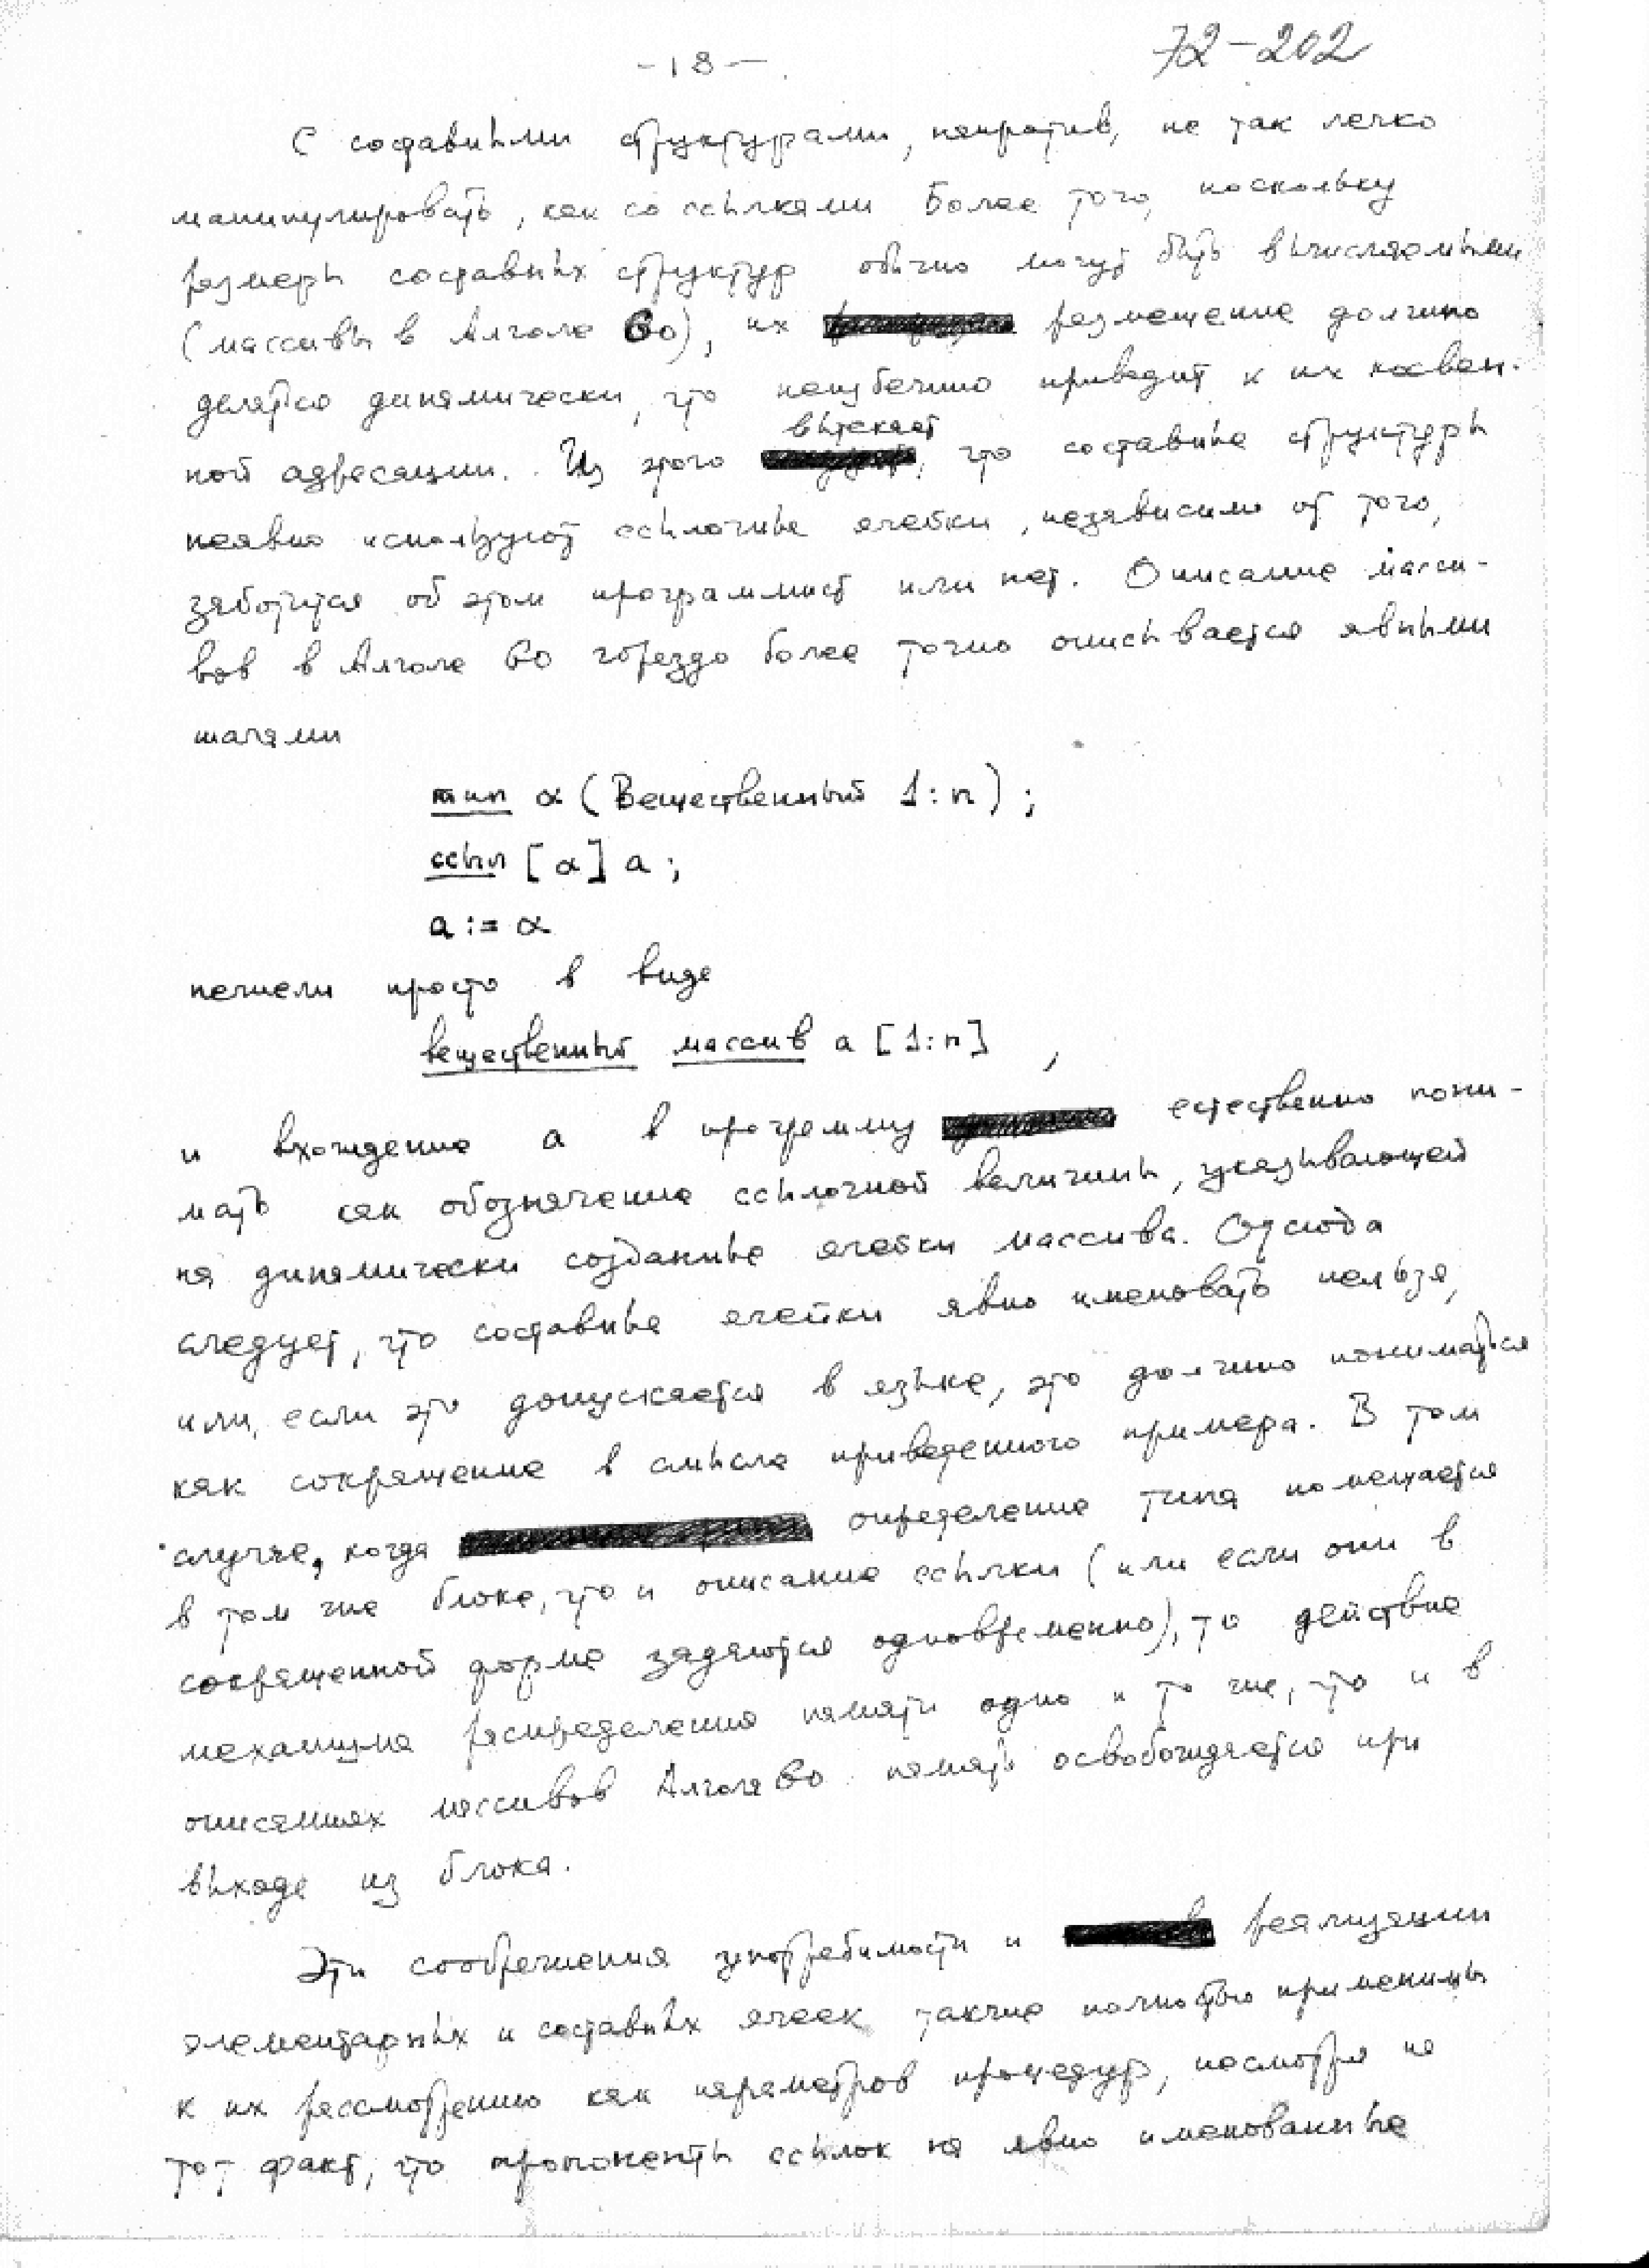 -18-
72-202
С составными структурами, напротив, не так легко
манипулировать, как со ссылками Более того, поскольку
размеры составных структур обычно могут быть вычисляемыми
(массивы в Алголе 60), их размещение должно
делаться динамически, что неизбежно приводит к их косвен-
ной адресации. Из этого вытекает, что составные структуры
неявно используют ссылочные ячейки, независимо от того,
заботится об этом программист или нет. Описание масси-
вов в Алголе 60 гораздо более точно описывается явными
шагами
тип α (Вещественный 1:n);
ссыл [α] a;
a := α
нежели просто в виде
вещественный массив a [1:n] ,
и вхождение a в программу естественно пони-
мать как обозначение ссылочной величины, указывающей
на динамически созданные ячейки массива. Отсюда
следует, что составные ячейки явно именовать нельзя,
или, если это допускается в языке, это должно пониматься
как сокращение в смысле приведенного примера. В том
случае, когда определение типа помещается
в том же блоке, что и описание ссылки (или если они в
сокращенной форме задаются одновременно), то действие
механизма распределения памяти одно и то же, что и в
описаниях массивов Алгола 60 память освобождается при
выходе из блока.
Эти соображения употребимости и реализации
элементарных и составных ячеек также полностью применимы
к их рассмотрению как параметров процедур, несмотря на
тот факт, что пропоненты ссылок на явно именованные